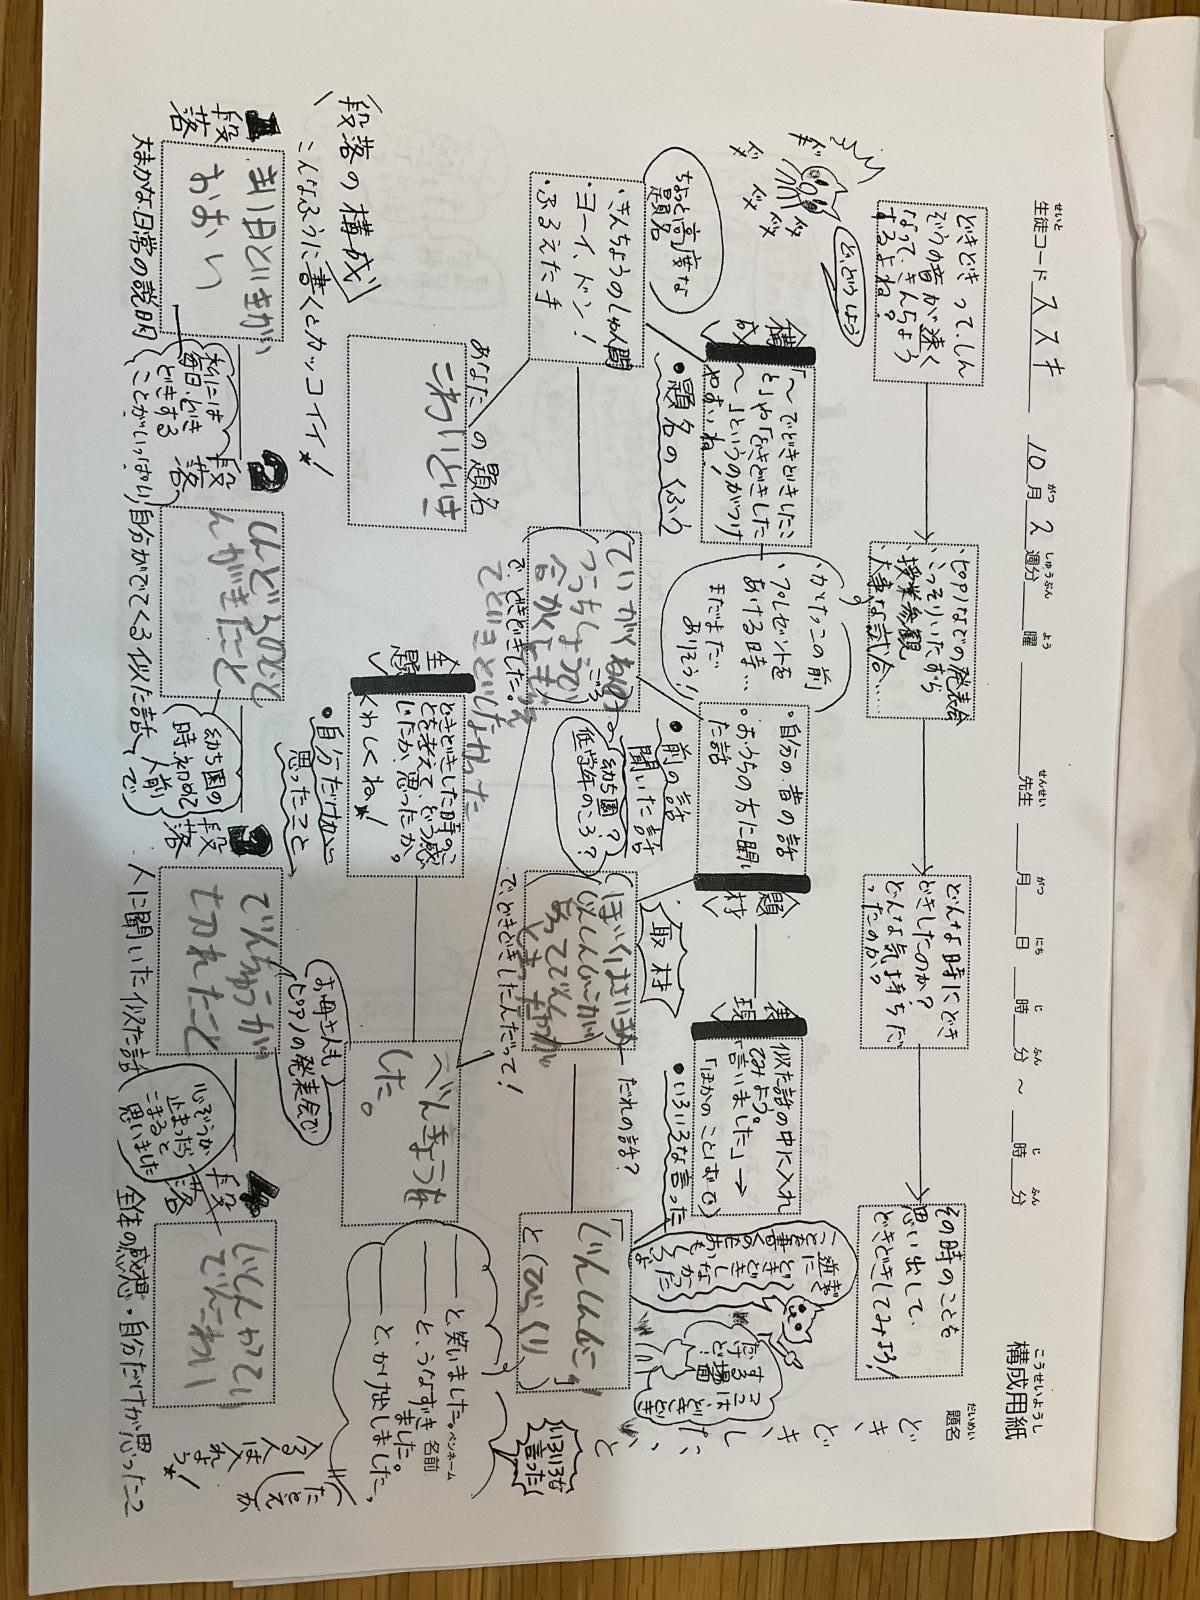 構成用紙
こうせいようし
生徒コード ススキ 10月2週分 曜 先生 月 日 時 分 ~ 時 分
題名
だいめい
どきどきしたこと
どきどきって、しん
ぞうの音が速く
なって、きんちょう
するよね?
ど、どうしよう
・ピアノなどの発表会
・こっそりいたずら
・授業参観
・大事な試合…
どんな時にどき
どきしたのか?
どんな気持ちだ
ったのか?
その時のことを
思い出して、
どきどきしてみよう!
構成
「〜でどきどきしたこ
と」や「どきどきした
〜」というのがつけ
やすいね!
・題名のくふう
ちょっと高度な
題名
・きんちょうのしゅん間
・ヨーイ、ドン!
・ふるえた手
あなたの題名
こわいとき
・かけっこの前
・プレゼントを
あげる時…
まだまだ
ありそう!
題材
・自分の昔の話
・おうちの方に聞い
た話
・前の話
聞いた話
取材
幼ち園?
低学年のころ?
で、どきどきした。
だれの話?
で、どきどきしたんだって!
表現
似た話の中に入れ
てみよう。
「言いました」→
「ほかのことばで」
・いろいろな言った
ココは
どきどき
する場面
だけど!
「じしんだ」
と(びっくり)
いろいろな
言った!
と、笑いました。
と、うなずき
ました。
と、かけ出しました。
ペンネーム
名前
主題
どきどきした時のこ
とを考えて、どう感
じたか、思ったか。
くわしくね!
・自分だけが心に
思ったこと
べんきょうな
した。
段落の構成
こんなふうに書くとカッコイイ!
1段落
まい日といきが
おおい
大まかな日常の説明
私には
毎日、どき
どきする
ことがいっぱい
2段落
自分がでてくる似た話
幼ち園の
時、初めて
人前で
3段落
でんちゅうが
切れたこと
人に聞いた似た話
お母さんも
ピアノの発表会で
4段落
じしんがって
でんこわい
全体の感想・自分だけが思ったこと
心ぞうが
止まったら
こまると
思いました
たとえか
会話
は入れよう!